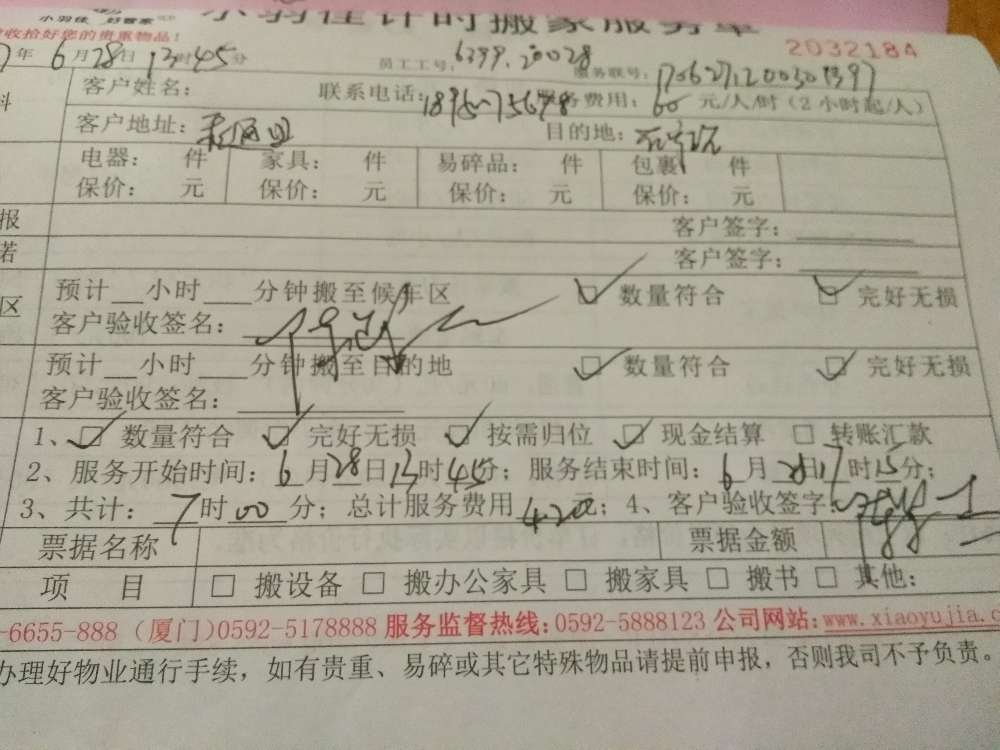 小羽佳计时搬家服务单
小羽佳 好管家
收拾好您的贵重物品！
2032184
7年6月28日13时45分 员工工号：6399.20028 服务联号：
客户姓名： 联系电话： 服务费用：60元/人/时（2小时起/人）
客户地址： 目的地：
电器： 件 家具： 件 易碎品： 件 包裹 件
保价： 元 保价： 元 保价： 元 保价： 元
报 客户签字：
若 客户签字：
预计__小时___分钟搬至候车区 数量符合 完好无损
区
客户验收签名：
预计__小时___分钟搬至目的地 数量符合 完好无损
客户验收签名：
1、 数量符合 完好无损 按需归位 现金结算 转账汇款
2、服务开始时间：6月28日13时45分；服务结束时间：6月28日17时15分；
3、共计：7时00分；总计服务费用420元；4、客户验收签字：
票据名称 票据金额
项 目 搬设备 搬办公家具 搬家具 搬书 其他：
-6655-888（厦门）0592-5178888 服务监督热线：0592-5888123 公司网站：www.xiaoyujia.c
办理好物业通行手续，如有贵重、易碎或其它特殊物品请提前申报，否则我司不予负责。